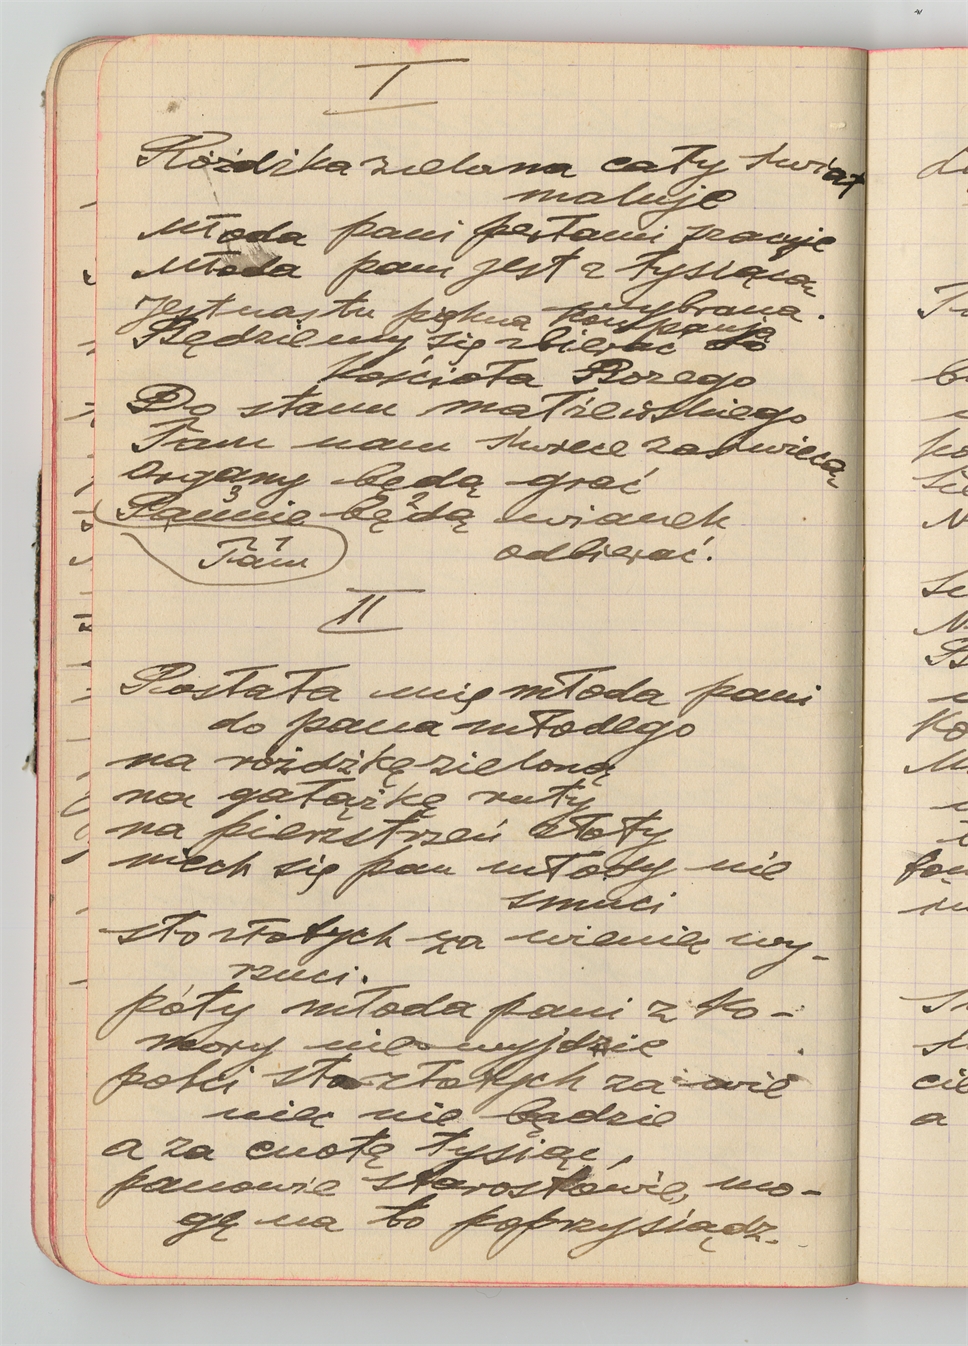 I
Różdżka zielona cały świat
maluje
Młoda pani perłami szacuje
Młoda pani jest z tysiąca
wybrana.
Jest nas tu piękna kompanja
Będziemy się zbierać do
kościoła Bożego
Do stanu małżeńskiego
Tam nam świece zaświecą
organy będą grać
3 2
Pannie będą wianek
21
Tam odbierać.
II
Posłała mię młoda pani
do pana młodego
na różdżkę zieloną
na gałązkę ruty
na pierzstrzeń złoty
niech się pan młody nie
smuci
sto złotych za wieniec wy-
rzuci.
póty młoda pani z ko-
mory nie wyjdzie
póki sto złotych za wie
niec nie będzie
a za cnotę tysiąc,
panowie starostowie, mo-
gę na to poprzysiądz.